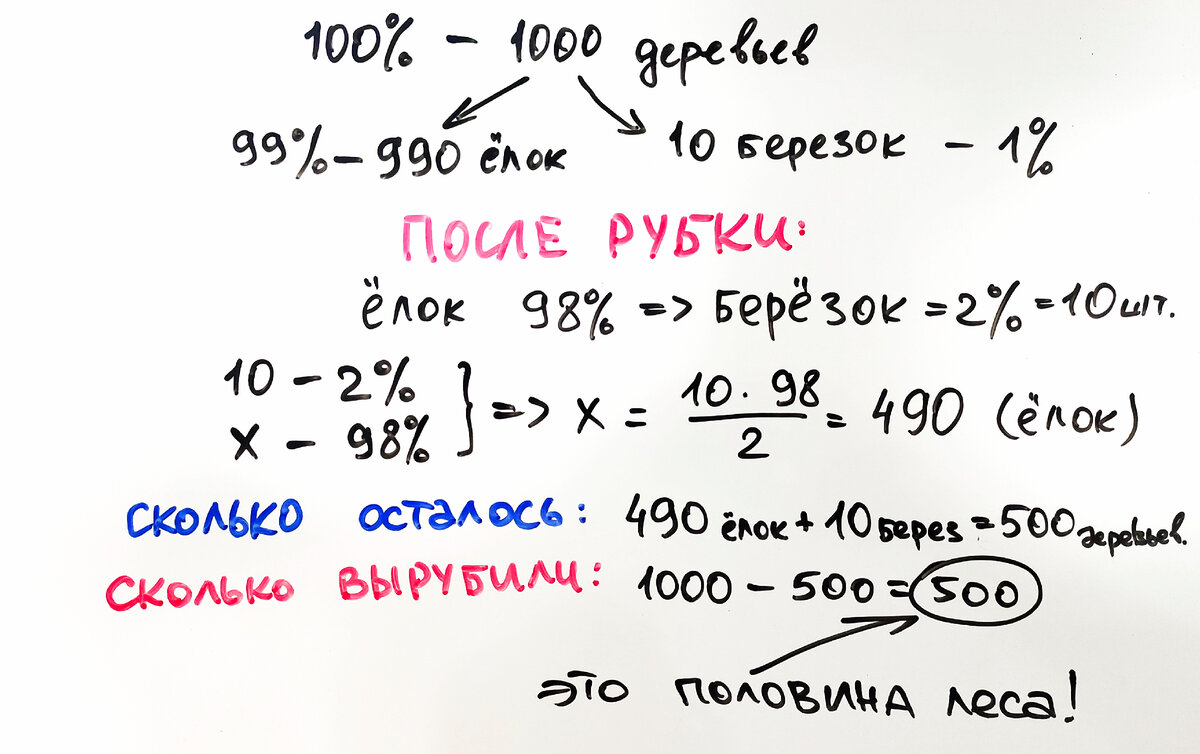 100% - 1000 деревьев
99% - 990 ёлок 10 березок - 1%
ПОСЛЕ РУБКИ:
ёлок 98% => БЕРЁЗОК = 2% = 10 шт.
10 - 2%
x - 98%
} => x = 10 · 98 / 2 = 490 (ёлок)
СКОЛЬКО ОСТАЛОСЬ: 490 ёлок + 10 берез = 500 деревьев.
СКОЛЬКО ВЫРУБИЛИ: 1000 - 500 = 500
ЭТО ПОЛОВИНА ЛЕСА!